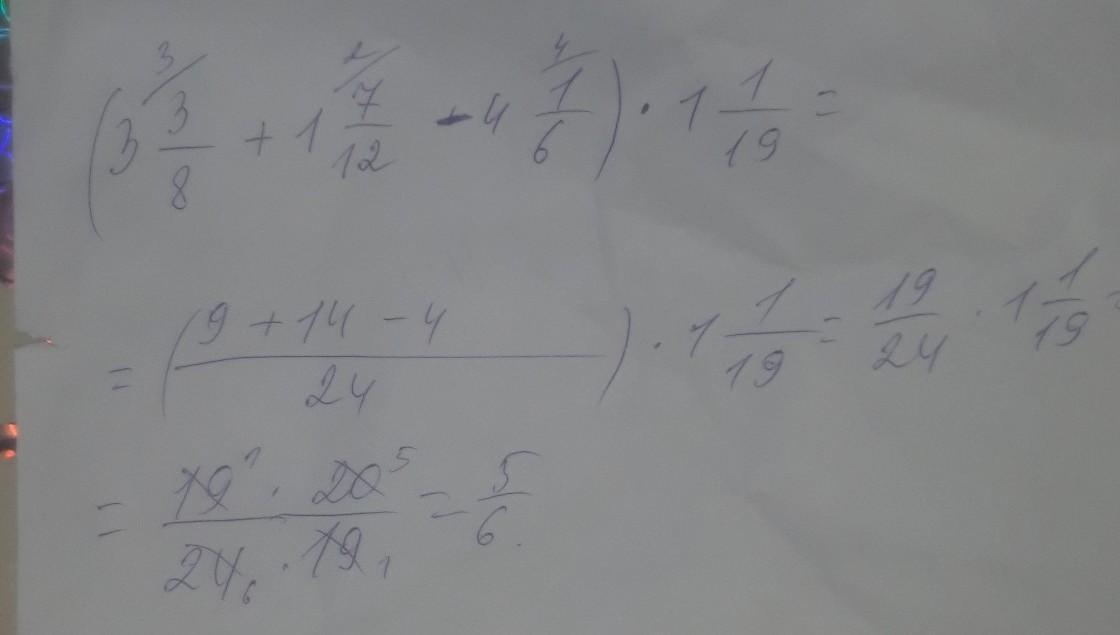 (3 3/8 + 1 7/12 - 4 1/6) · 1 1/19 =
= (9 + 14 - 4 / 24) · 1 1/19 = 19/24 · 1 1/19 =
= 19 · 20 / 24 · 19 = 5/6.